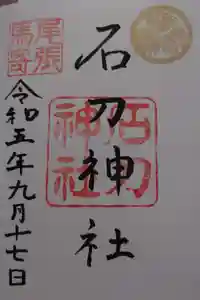 尾張
馬寄
石刀神社
石刀
神社
令和五年九月十七日